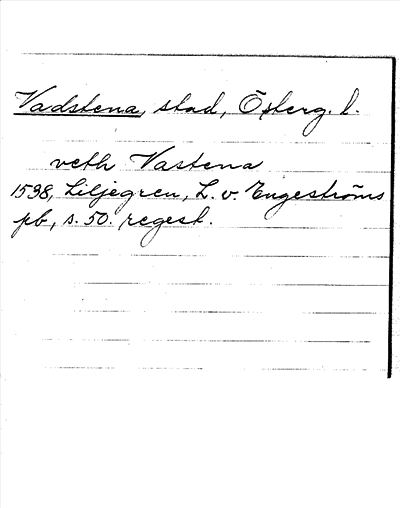 Vadstena, stad, Österg. l.
veth Vastena
1598, Liljegren, L. v. Engeströms
pb, s. 50. regest.